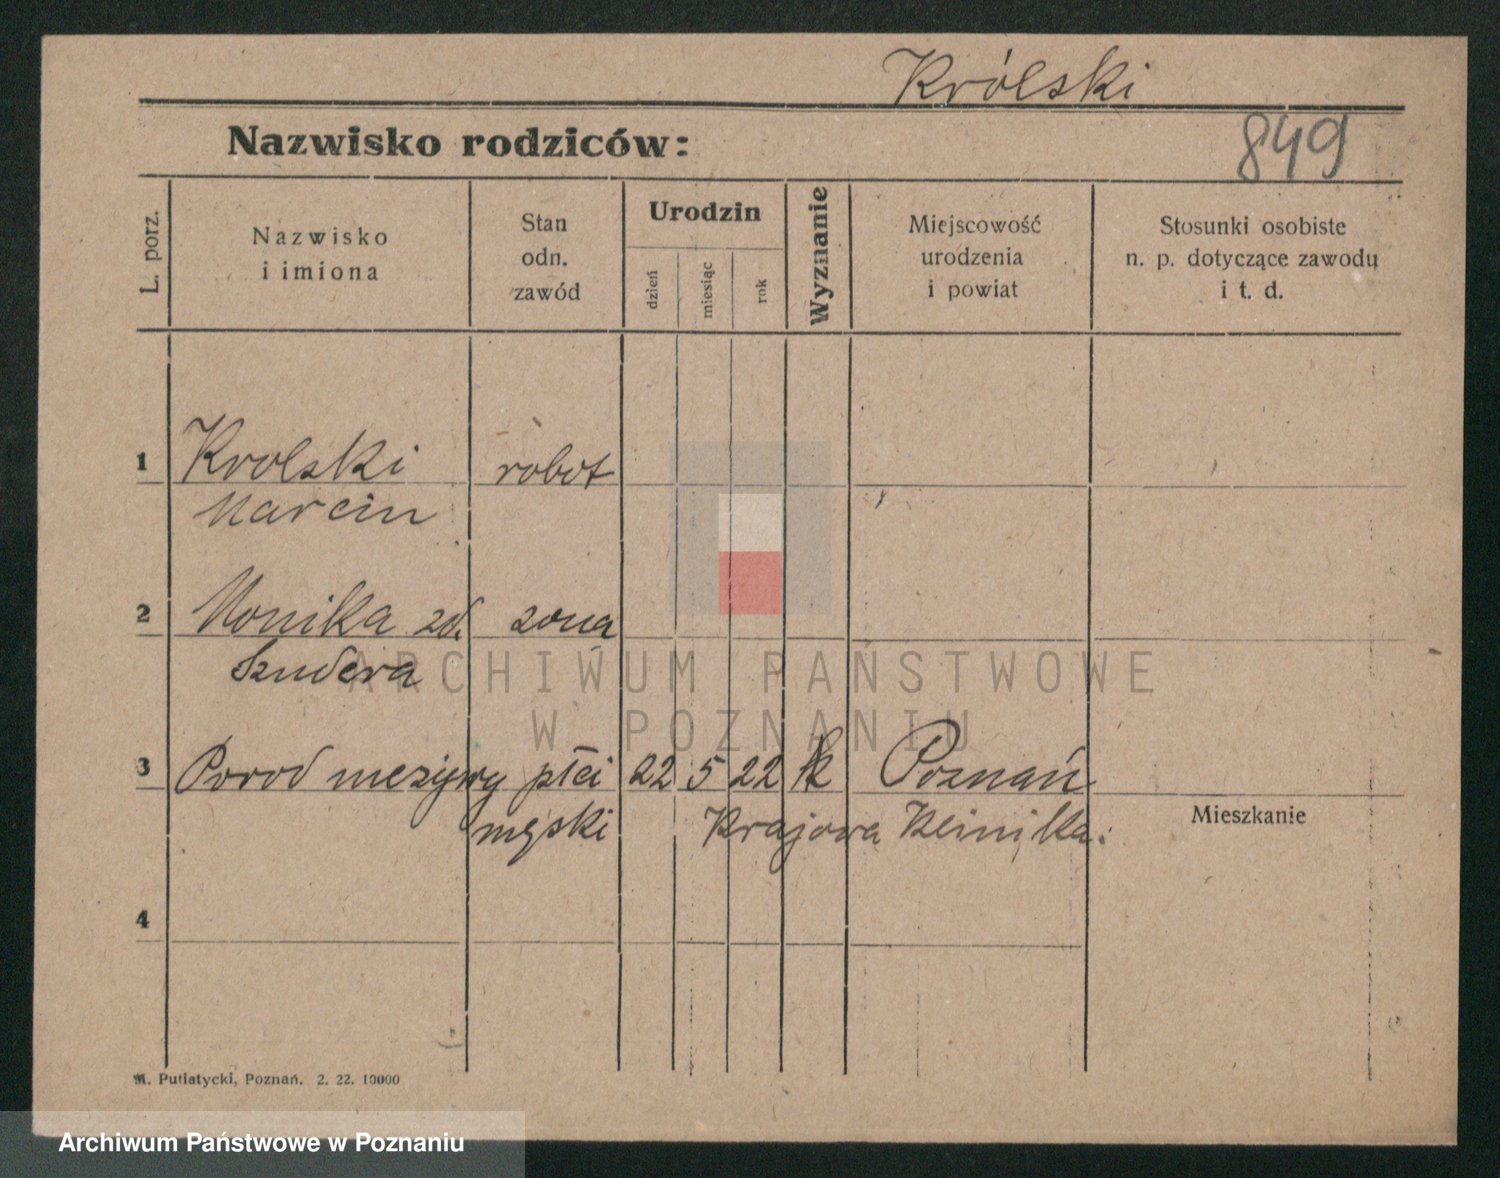 Królski
Nazwisko rodziców:
849
L. porz.
Nazwisko
i imiona
Stan
odn.
zawód
Urodzin
dzień
miesiąc
rok
Wyznanie
Miejscowość
urodzenia
i powiat
Stosunki osobiste
n. p. dotyczące zawodu
i t. d.
1 Krolski robot
Marcin
2 Monika zd. zona
Szudera
ARCHIWUM PAŃSTWOWE
W POZNANIU
3 Porod niezywy płci 22 5 22 k Poznań
męski Krajowa Klinika.
Mieszkanie
4
M. Putiatycki, Poznań. 2. 22. 10000
Archiwum Państwowe w Poznaniu